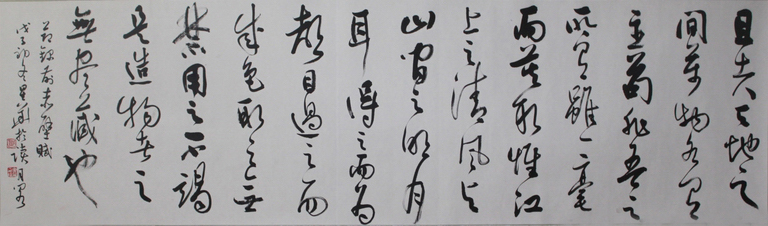 且夫天地之
間萬物各有
主苟非吾之
所有雖一毫
而莫取惟江
上之清風与
山間之明月
耳得之而為
聲目遇之而
成色取之無
禁用之不竭
是造物者之
無盡藏也
節錄前赤壁賦
戊子初冬